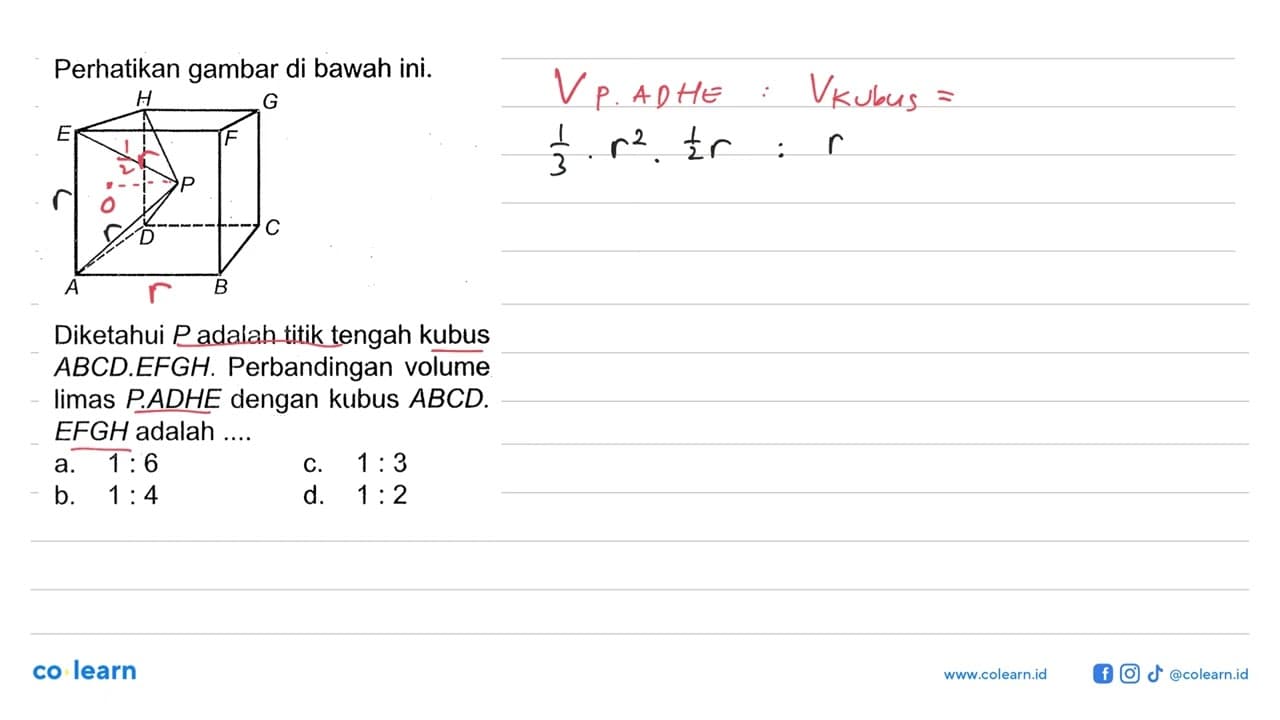 Perhatikan gambar di bawah ini.
H
G
E
F
1/2 r
P
r
O
r
D
C
A
r
B
Diketahui P adalah titik tengah kubus
ABCD.EFGH. Perbandingan volume
limas P.ADHE dengan kubus ABCD.
EFGH adalah ....
a. 1 : 6 c. 1 : 3
b. 1 : 4 d. 1 : 2
V P. ADHE : V Kubus =
1/3 . r² . 1/2 r : r
co learn
www.colearn.id
@colearn.id